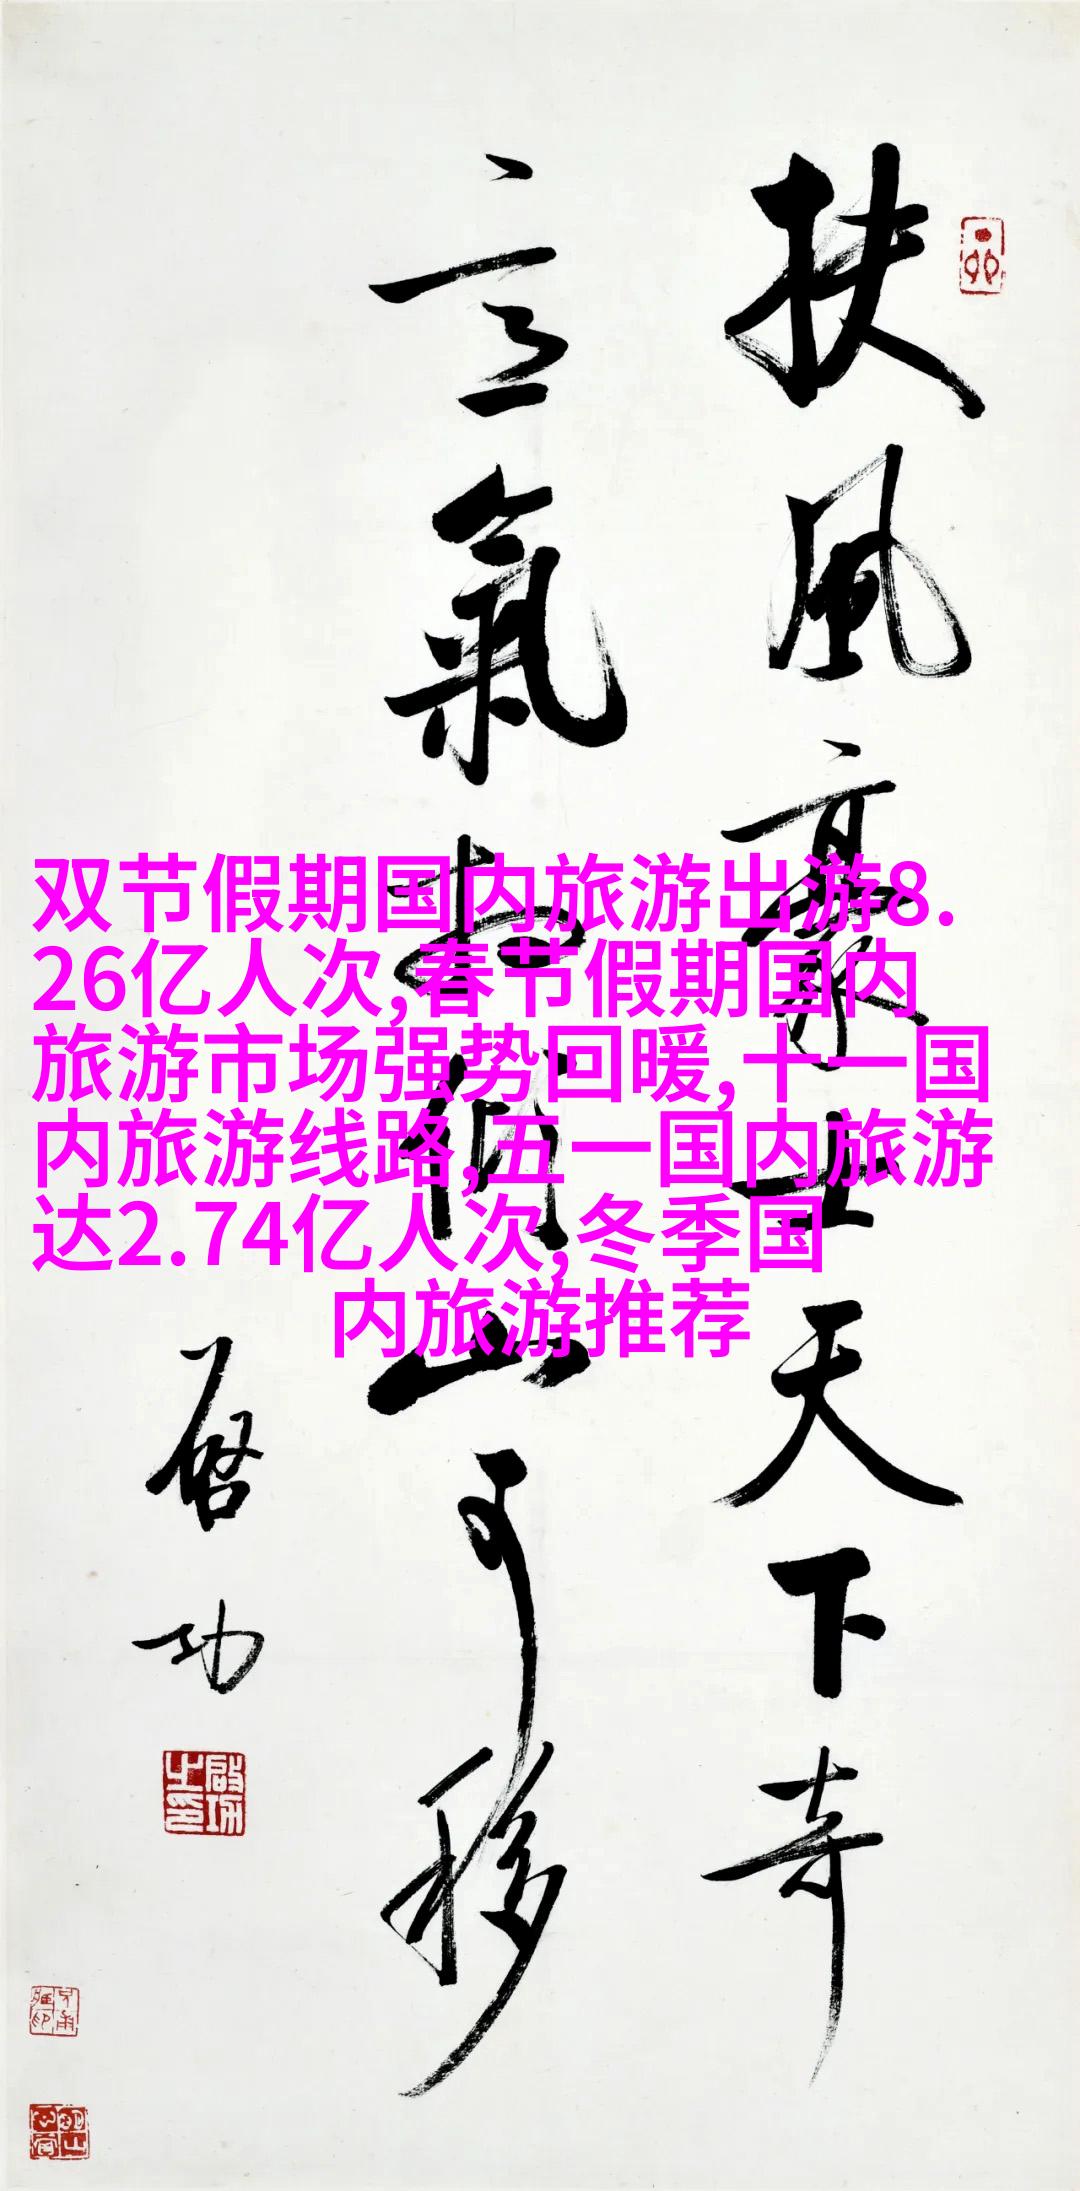 扶風豪士天下奇
意氣相傾山可移
启功
啟功之印
双节假期国内旅游出游8.
26亿人次,春节假期国内
旅游市场强势回暖,十一国
内旅游线路,五一国内旅游
达2.74亿人次,冬季国
内旅游推荐